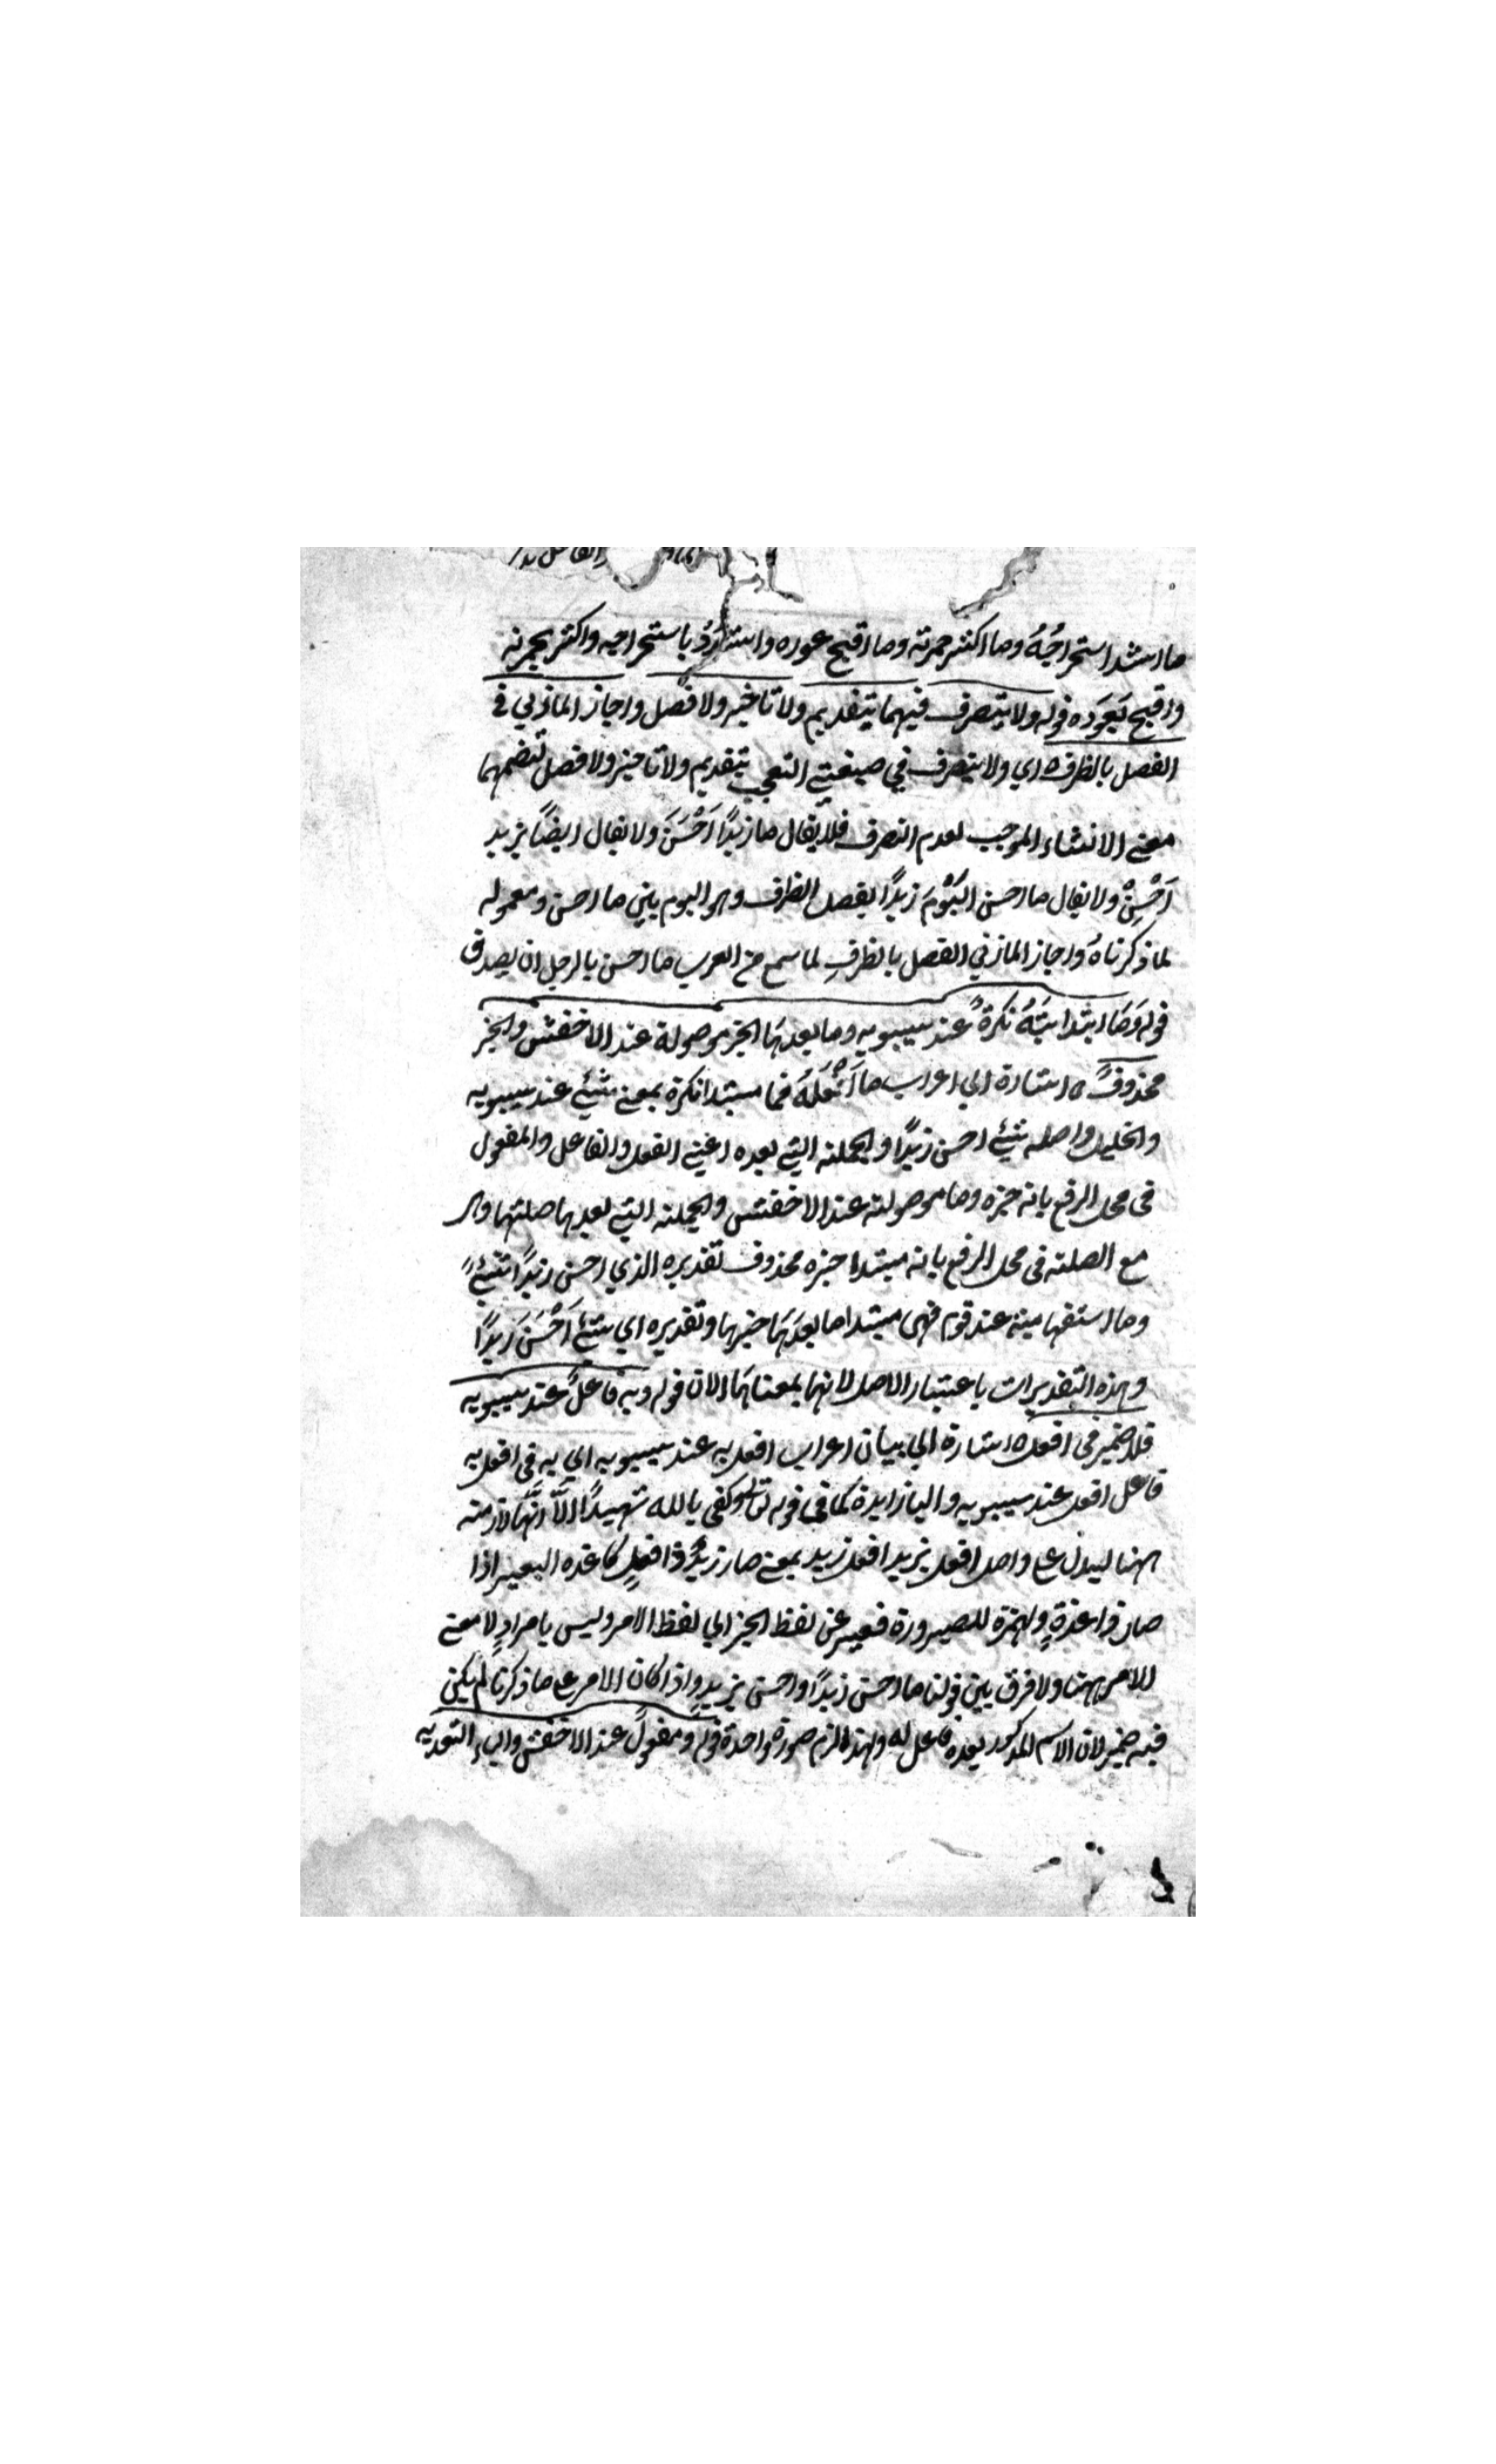 ما اشد استخراجُهُ وما اكثر حمرته وما اقبح عوره واشدد باستخراجه واكثر بحمرته
واقبح بَعَوَره قوله ولا يتصرف فيهما بتقديم ولا تاخير ولا فصل واجاز المازني في
الفصل بالظرف ه اي ولا يتصرف في صيغتي التعجب بتقديم ولا تاخير ولا فصل لتضمنهما
معنى الانشاء الموجب لعدم التصرف فلا يقال ما زيدًا اَحْسَنَ ولا يقال ايضًا بزيد
اَحْسِنْ ولا يقال ما احسن اليَوْمَ زيدًا بفصل الظرف وهو اليوم بين ما احسن ومعموله
لما ذكرناهُ واجاز المازني الفصل بالظرفِ لما سمع من العرب ما احسن بالرجل ان يصدق
قوله وَمَا ابتدائيَّةُ نكرةٌ عند سيبويه وما بعدهَا الخبر موصولة عند الاخفش والخبر
محذوفٌ ه اشارة الي اعراب ما اَفْعَلَهُ فما مبتدا نكرة بمعنى شيئ عند سيبويه
والخليل واصله شيئ احسن زيدًا والجملة التي بعده اعني الفعل والفاعل والمفعول
في محل الرفع بانه خبره وما موصولة عند الاخفش والجملة التي بعدها صلتها وهي
مع الصلة في محل الرفع بانه مبتدا خبره محذوف تقديره الذي احسن زيدًا شيئٌ
وما استفهامية عند قوم فهي مبتدا ما بعدَهَا خبرها وتقديره اي شيئ اَحْسَنَ زيدًا
وهذه التقديرات باعتبار الاصل لانها بمعناهَا الان قوله وبه فاعلٌ عند سيبويه
فلا ضمير في افعل ه اشارة الي بيان اعراب افعل به عند سيبويه اي به في افعل به
فاعل افعل عند سيبويه والبا زايدة كما في قوله تعالى وكفى بالله شهيدًا الاَّ انَّها لازمة
ههنا ليدل على واصل افعل بزيد افعل زيد بمعنى صار زيدٌ ذا فعلٍ كاغده البعير اذا
صار ذا غدةٍ والهمزة للصيرورة فعبر عن لفظ الخبر الي لفظ الامر وليس بامرادٍ لا معنى
للامر ههنا ولا فرق بين قولنا ما احسن زيدًا واحسن بزيد واذا كان الامر على ما ذكرنا لم يكن
فيه ضمير لان الاسم المذكور بعده فاعل له ولهذا لزم صورة واحدة قوله ومفعولٌ عند الاخفش والباء للتعدية